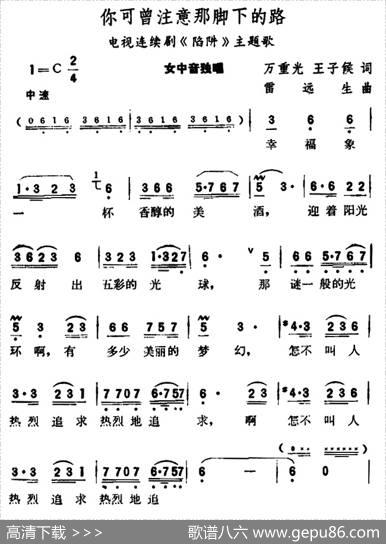 你可曾注意那脚下的路
电视连续剧《陷阱》主题歌
1=C 2/4 女中音独唱 万重光 王子候 词
中速 雷远生曲
(0616 1616 | 3616 1616) | 3 6 | 6 6 |
幸福象
1·3 23 | 6 | 366 5·767 | 5 3· | 3·6 22 |
一杯 香醇的美酒，迎着阳光
3623 6 | 223 1·327 | 6 - | 5 66 5·767 |
反射出 五彩的光球，那谜一般的光
5 3· 23 | 66 5577 | 6 3 | #4·3 236 |
环啊，有 多少美丽的梦幻，怎不叫人
3·3 231 | 7707 6·757 | 6 1·23 | #4·3 236 |
热烈追求 热烈地追求，啊 怎不叫人
3·3 231 | 7707 6·757 | 6 - | 6 0 |
热烈追求 热烈地追
高清下载 >>> 歌谱八六 www.gepu86.com